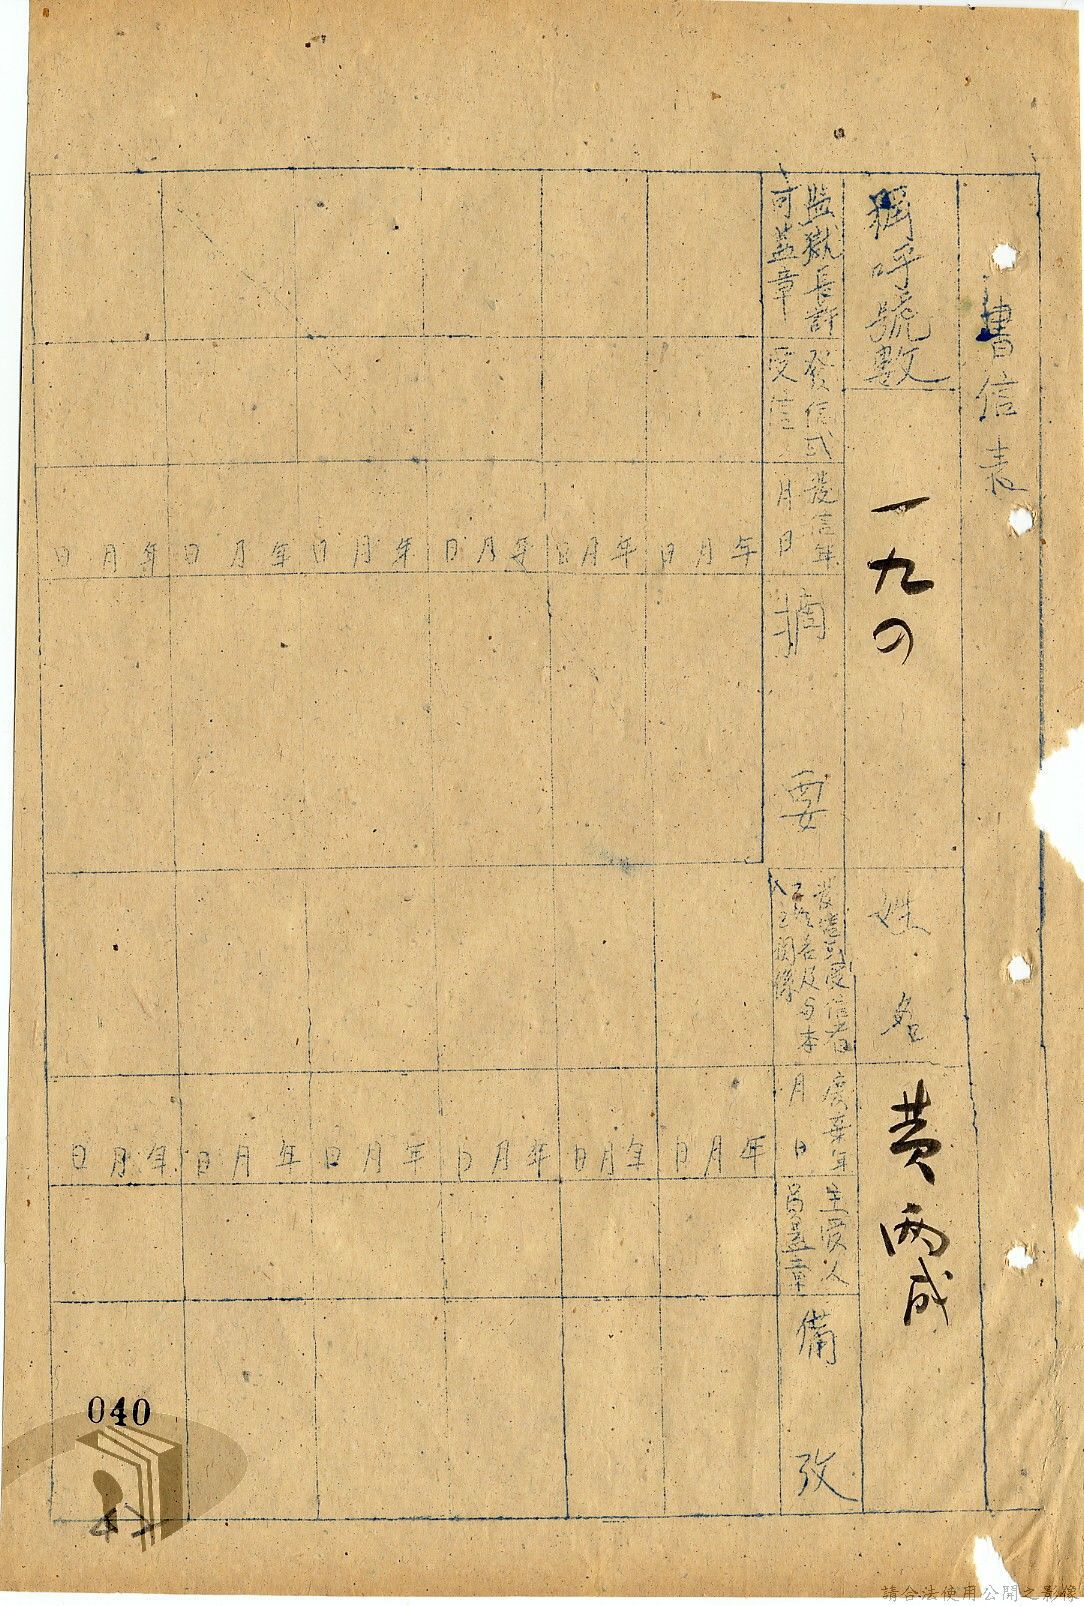 書信表
稱呼號數
一九四
姓名
黄両成
監獄長許
可盖章
發信或
受信
發信年
月日
摘要
發信或受信者
之姓名及与本
人之關係
廃棄年
月日
主受人
員盖章
備攷
年月日
年月日
年月日
年月日
年月日
年月日
年月日
年月日
年月日
年月日
年月日
年月日
040
請合法使用公開之影像